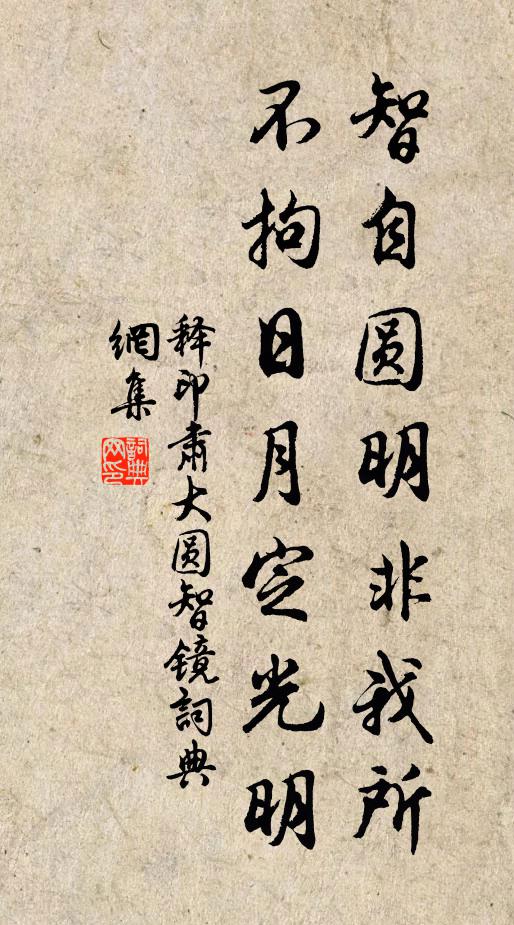 智自圆明非我所
不拘日月定光明
释印肃大圆智镜詞典
網集
詞典
网印